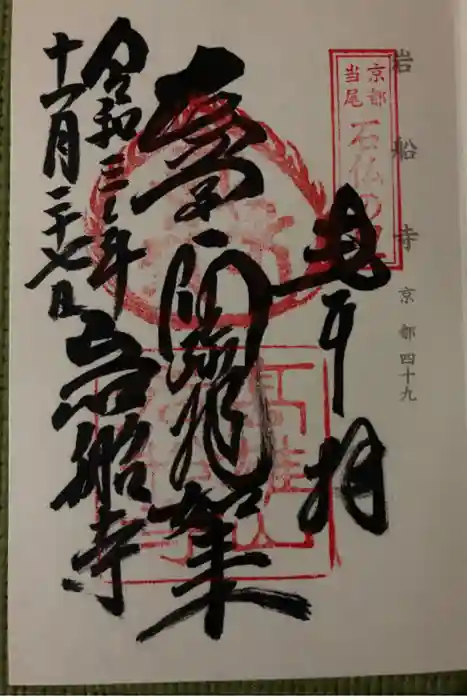 岩船寺 京都四十九
京都
当尾
石仏の里
奉拝
阿弥陀如来
令和三年
十一月二十七日
岩船寺